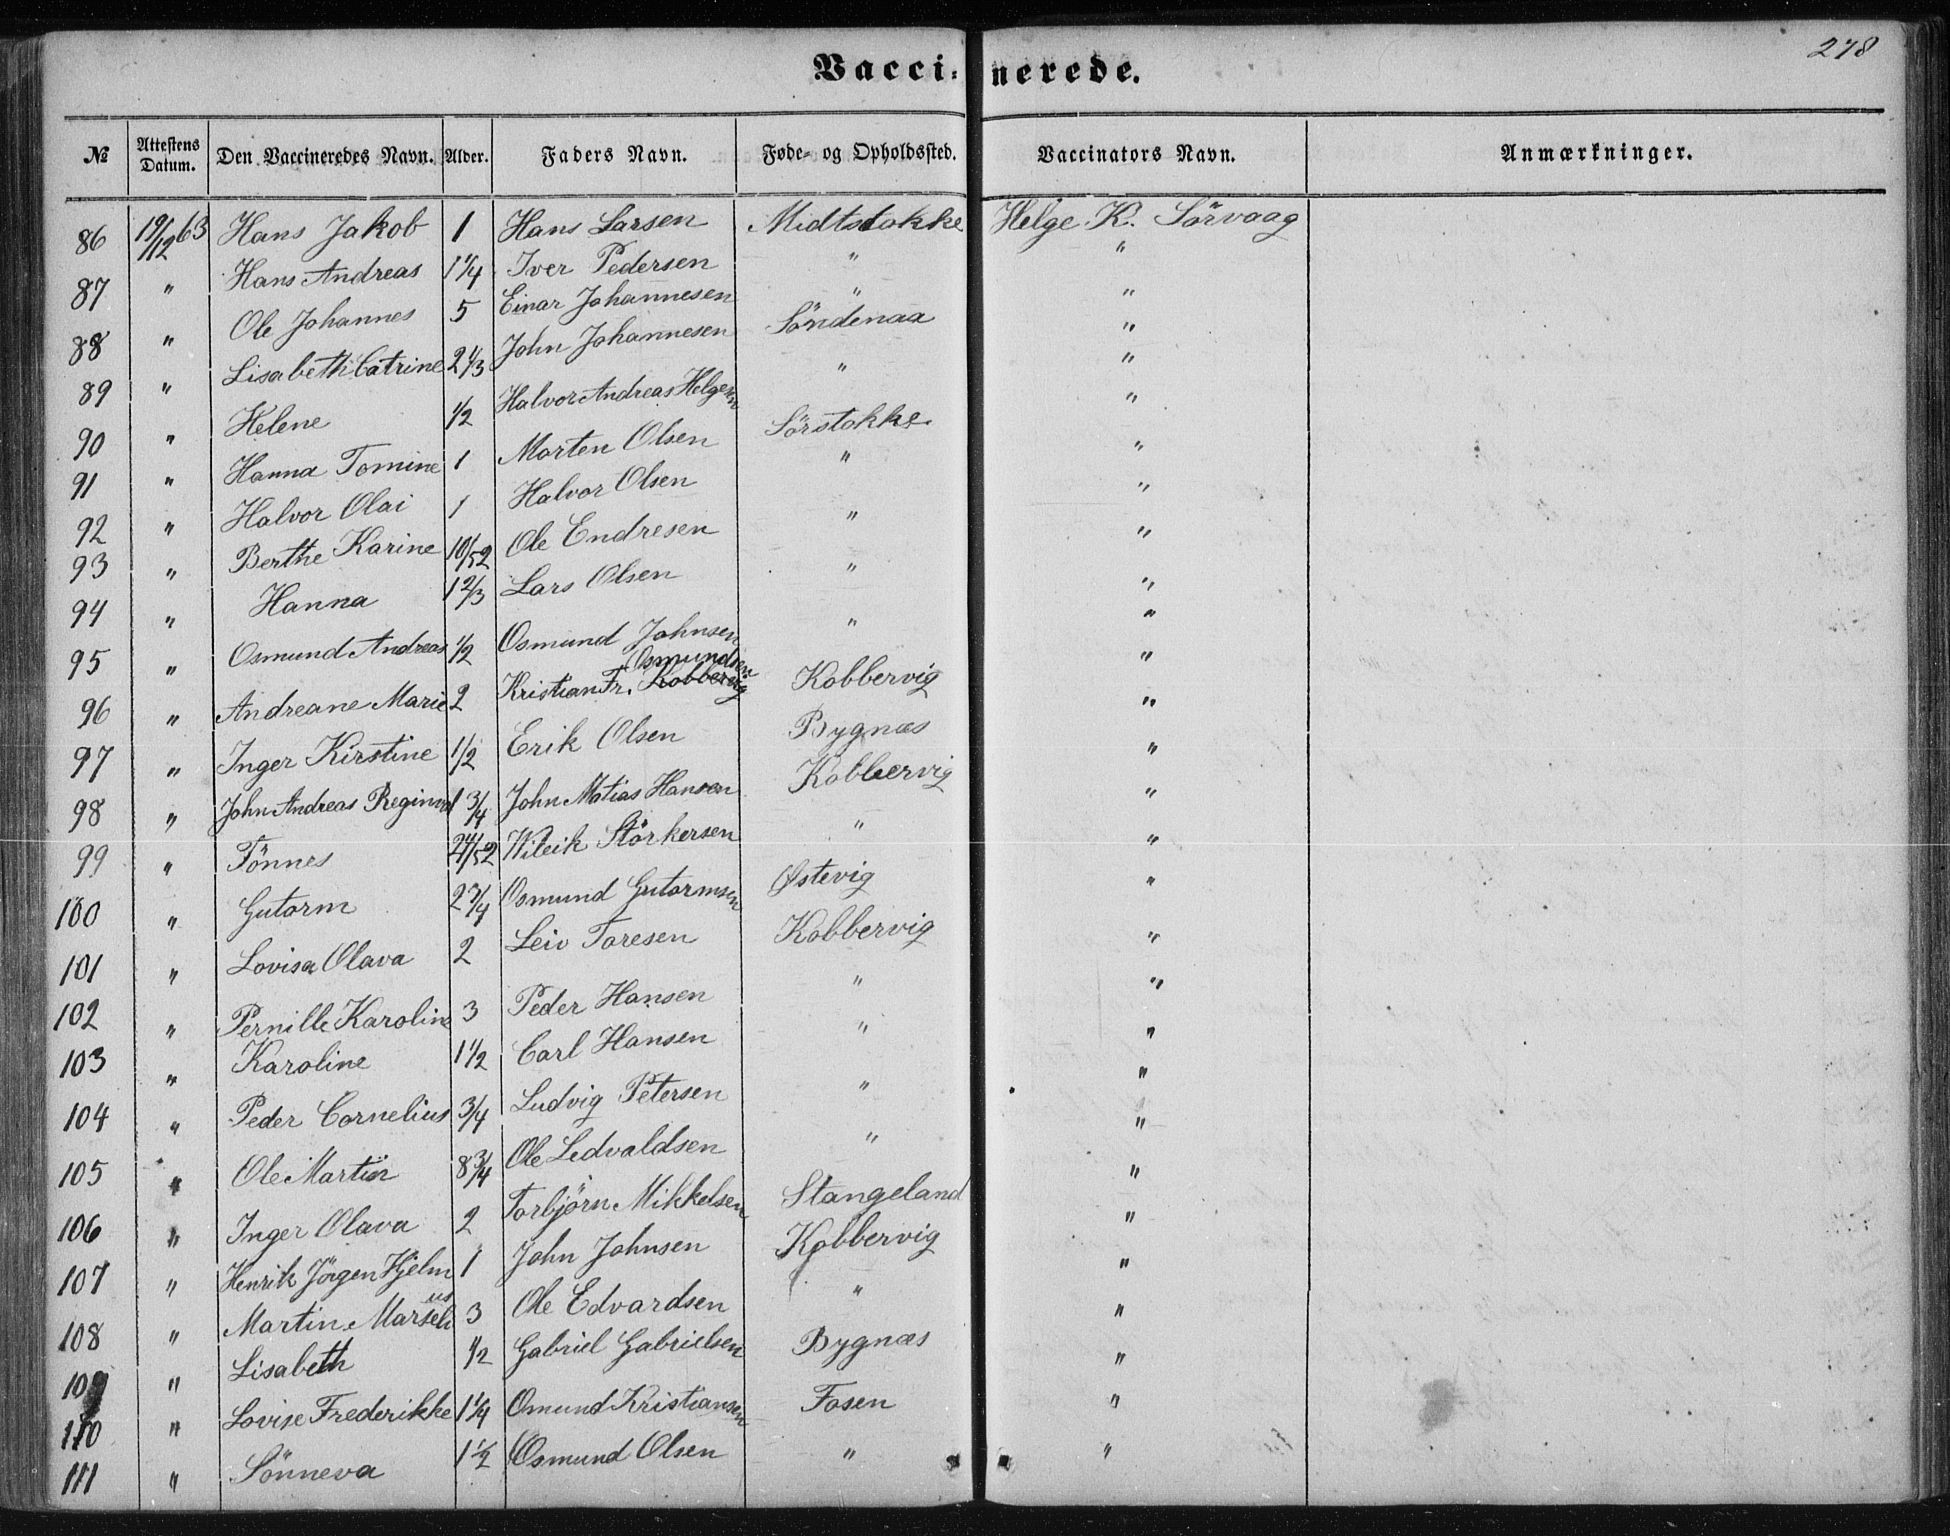 278
Vaccinerede.
№ Attestens Datum. Den Vaccineredes Navn. Alder. Faders Navn. Føde- og Opholdssted. Vaccinators Navn. Anmærkninger.
86 19/12 63 Hans Jakob 1 Hans Larsen Midtstokke Helge K. Sörvaag
87 " Hans Andreas 1 1/4 Iver Pedersen " "
88 " Ole Johannes 5 Einar Johannesen " "
89 " Lisabeth Catrine 2 1/3 John Johannesen Söndenaa "
90 " Helene 1/2 Halvor Andreas Helgesen " "
91 " Hanna Tomine 1 Morten Olsen Sörstokke "
92 " Halvor Olai 1 Halvor Olsen " "
93 " Berthe Karine 10/52 Ole Endresen " "
94 " Hanna 1 2/3 Lars Olsen " "
95 " Osmund Andreas 1/2 Osmund Johnsen " "
96 " Andreane Marie 2 Kristian Fr. Kobbervig Osmundsen Kobbervig "
97 " Inger Kirstine 1/2 Erik Olsen Bygnæs "
98 " John Andreas 1 3/4 John Matias Hansen Kobbervig "
99 " Tönnes 24/52 Wileik Störkersen " "
100 " Gutorm 2 3/4 Osmund Gutormsen Østevig "
101 " Lovisa Olava 2 Leiv Toresen Kobbervig "
102 " Pernille Karoline 3 Peder Hansen " "
103 " Karoline 1 1/2 Carl Hansen " "
104 " Peder Cornelius 3/4 Ludvig Petersen " "
105 " Ole Martin 8 3/4 Ole Ledvaldsen " "
106 " Inger Olava 2 Torbjörn Mikkelsen Stangeland "
107 " Henrik Jörgen Hjelm 1 John Johnsen Kobbervig "
108 " Martin 3 Ole Edvardsen " "
109 " Lisabeth 1/2 Gabriel Gabrielsen Bygnæs "
110 " Lovise Frederikke 1 1/4 Omund Kristiansen Fosen "
111 " Sönneva 1 1/2 Osmund Olsen " "